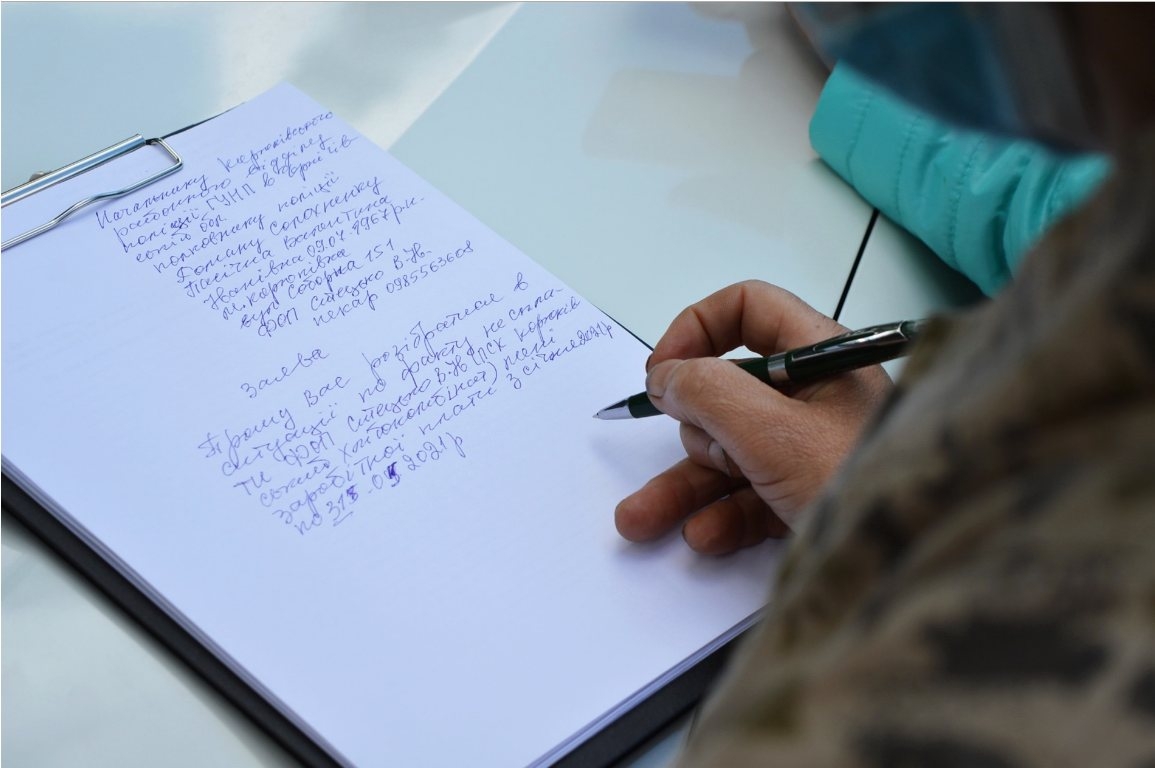 Начальнику Корюківського
районного відділу
поліції ГУНП в Чернігів
ській обл.
полковнику поліції
Роману Сопохненку
Пасічна Валентина
Іванівна 09.04.1967 р.н.
м. Корюківка
вул. Соборна 151
ФОП Стецько В.Ж.
пекар 0985563608
Заява
Прошу Вас розібратися в
ситуації по факту не спла-
ти ФОП Стецько В.Ж (ПСК Корюків
ський хлібокомбінат) мені
заробітної плати з січня 2021 р
по 31 2021 р